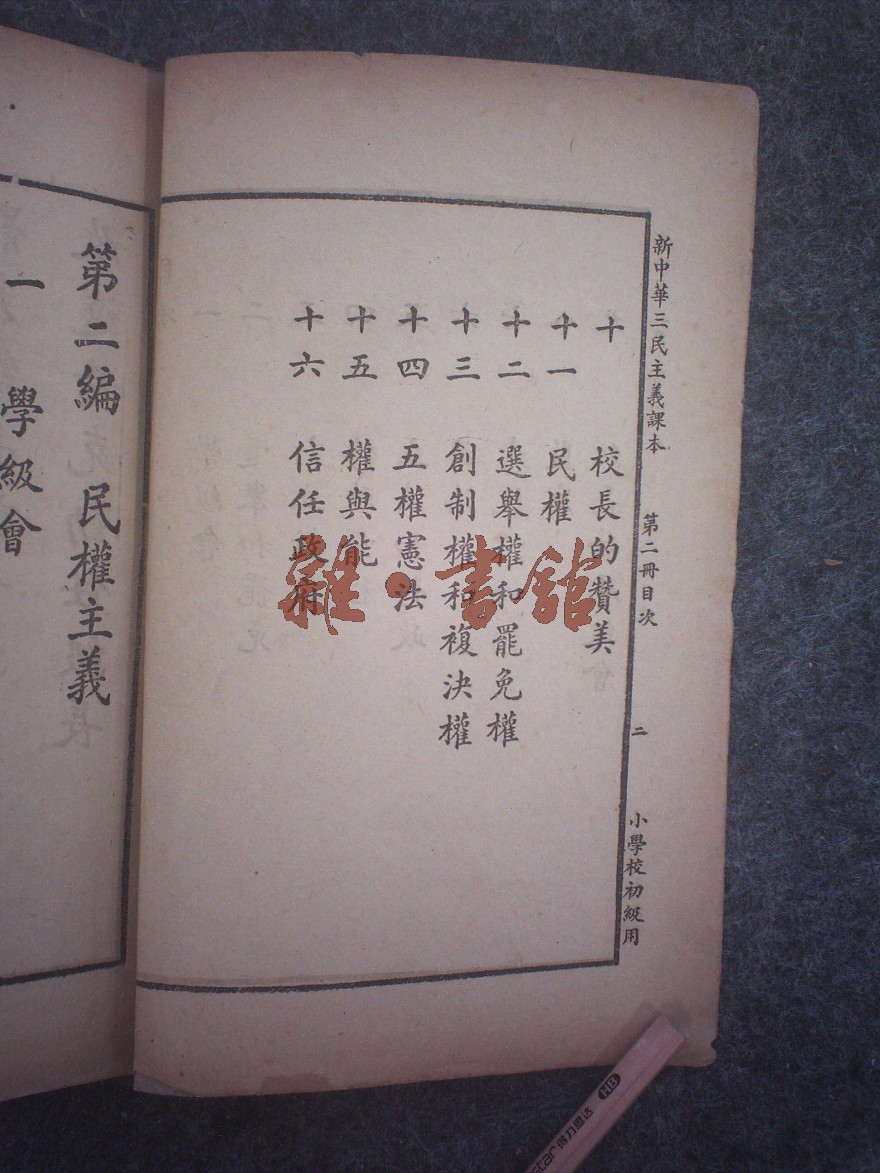 新中華三民主義課本 第二冊目次 二 小學校初級用
十 校長的贊美
十一 民權
十二 選舉權和罷免權
十三 創制權和複決權
十四 五權憲法
十五 權與能
十六 信任政府
第二編 民權主義
一 學級會
雜·書館
HB
得力思达